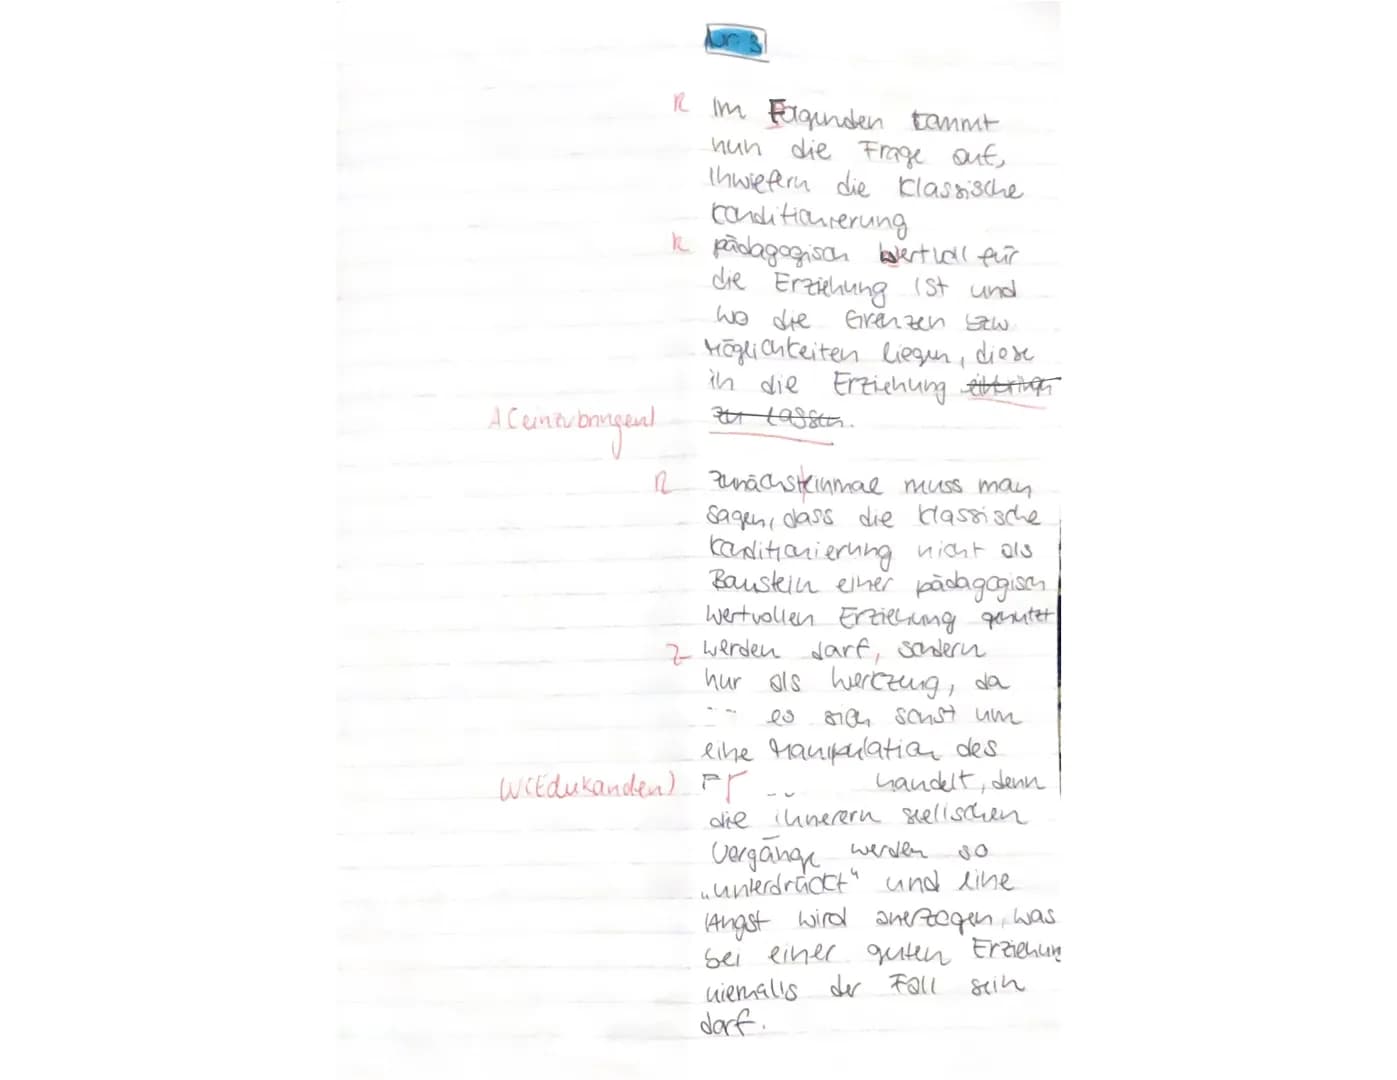 Nr 3
R Im Folgenden kommt
nun die Frage auf,
Inwiefern die Klassische
Konditionierung
R pädagogisch Wertvoll für
die Erziehung ist und
wo die Grenzen bzw
Möglichkeiten liegen, diese
in die Erziehung einbringen
A (einzubringen) zu lassen.
R Zunächsteinmal muss man
sagen, dass die klassische
Konditionierung nicht als
Baustein einer pädagogisch
wertvollen Erziehung genutzt
Z werden darf, sondern
nur als Werkzeug, da
es sich sonst um
eine Manipulation des
W(Edukanden) handelt, denn
die innerern seelischen
Vorgänge werden so
„unterdrückt" und eine
Angst wird anerzogen, was
bei einer guten Erziehun
niemals der Fall sein
darf.